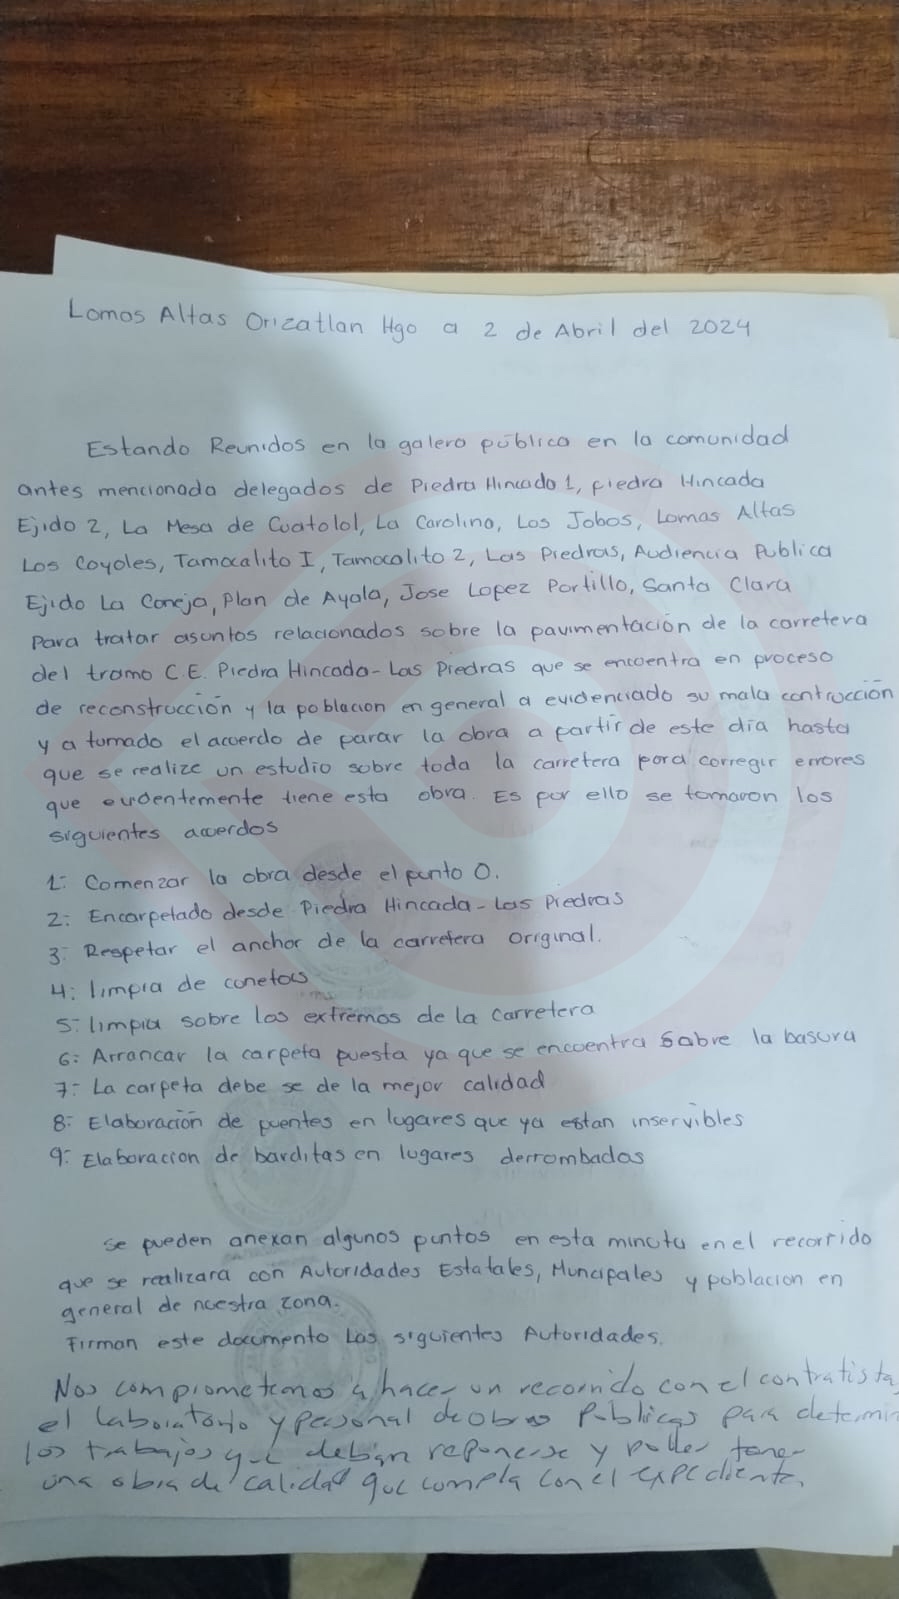 Lomas Altas Orizatlan Hgo a 2 de Abril del 2024
Estando Reunidos en la galera pública en la comunidad
antes mencionada delegados de Piedra Hincada 1, piedra Hincada
Ejido 2, La Mesa de Cuatolol, La Carolina, Los Jobos, Lomas Altas
Los Coyoles, Tamocalito I, Tamocalito 2, Las Piedras, Audiencia Publica
Ejido La Coneja, Plan de Ayala, Jose Lopez Portillo, Santa Clara
Para tratar asuntos relacionados sobre la pavimentación de la carretera
del tramo C.E. Piedra Hincada - Las Piedras que se encuentra en proceso
de reconstrucción y la poblacion en general a evidenciado su mala contrucción
y a tomado el acuerdo de parar la obra a partir de este día hasta
que se realize un estudio sobre toda la carretera para corregir errores
que evidentemente tiene esta obra. Es por ello se tomaron los
siguientes acuerdos
1: Comenzar la obra desde el punto 0.
2: Encarpetado desde Piedra Hincada - Las Piedras
3: Respetar el anchor de la carretera original.
4: limpia de conetas
5: limpia sobre los extremos de la carretera
6: Arrancar la carpeta puesta ya que se encuentra sobre la basura
7: La carpeta debe se de la mejor calidad
8: Elaboración de puentes en lugares que ya estan inservibles
9: Elaboracion de barditas en lugares derrombados
se pueden anexan algunos puntos en esta minuta en el recorrido
que se realizara con Autoridades Estatales, Muncipales y poblacion en
general de nuestra zona.
Firman este documento Las siguientes Autoridades.
Nos comprometemos a hacer un recorrido con el contratista,
el laboratorio y personal de obras Publicas para determin
los trabajos que deban reponerse y poder tener
una obra de calidad que cumpla con el expediente.